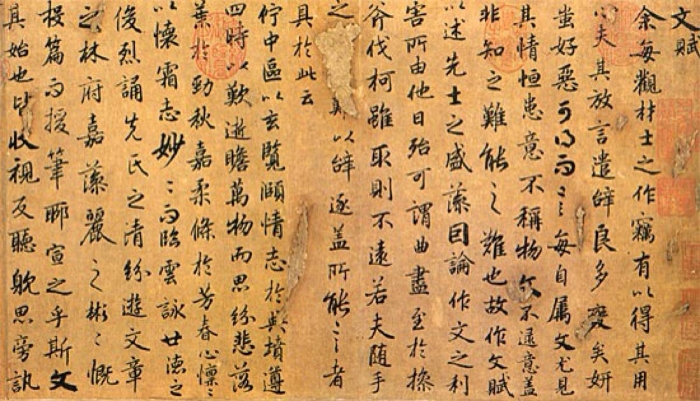 文賦
余每觀材士之作竊有以得其用
心夫其放言遣辭良多變矣妍
蚩好惡可得而言每自属文尤見
其情恒患意不稱物文不逮意盖
非知之難能之難也故作文賦
以述先士之盛藻因論作文之利
害所由他日殆可謂曲盡至於操
斧伐柯雖取則不遠若夫随手
之難以辭逐盖所能言之者
具於此云
佇中區以玄覽頤情志於典墳遵
四時以歎逝瞻萬物而思紛悲落
葉於勁秋嘉柔條於芳春心懍〻
以懷霜志妙〻而臨雲詠世德之
俊烈誦先民之清紛遊文章
之林府嘉藻麗之彬〻慨
投篇而援筆聊宣之乎斯文
其始也皆收視反聽躭思旁訊